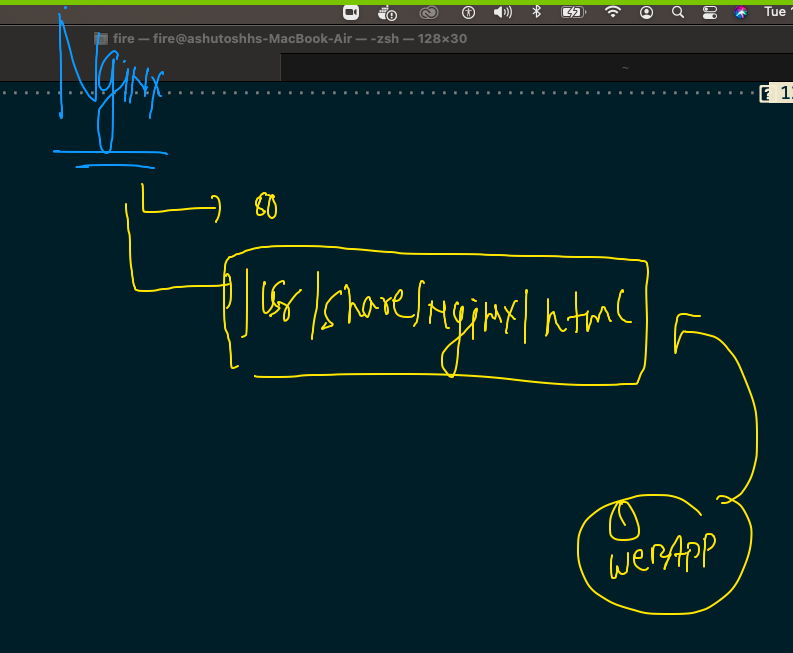 Tue
fire — fire@ashutoshhs-MacBook-Air — -zsh — 128×30
~
Nginx
80
/usr/share/nginx/html
WEBAPP